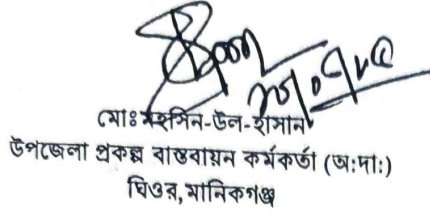 মোঃ মহসিন-উল-হাসান
উপজেলা প্রকল্প বাস্তবায়ন কর্মকর্তা (অ:দা:)
ঘিওর,মানিকগঞ্জ